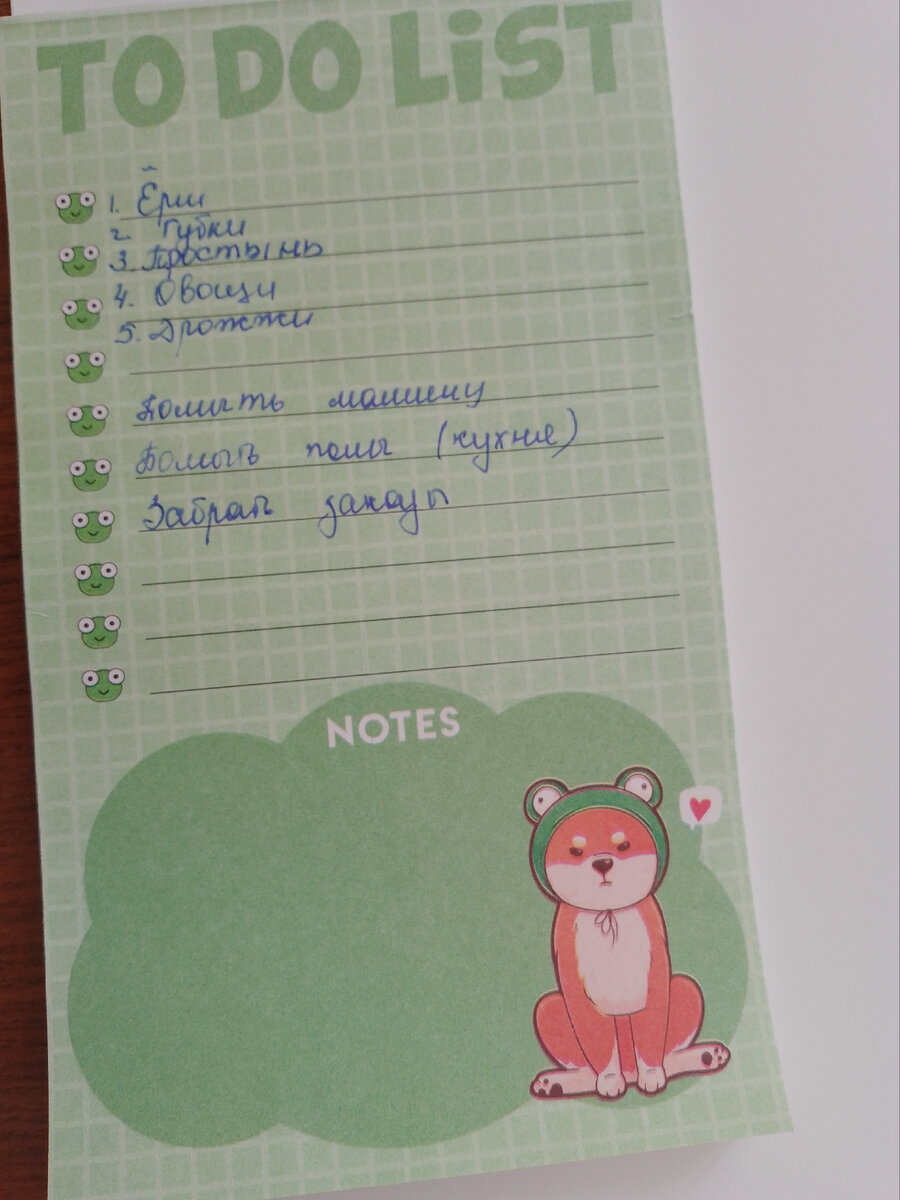 TO DO LiST
1. Ёрш
2. Губки
3. Простынь
4. Овощи
5. Дрожжи
Помыть машину
Помыть полы (кухня)
Забрать заказы
NOTES